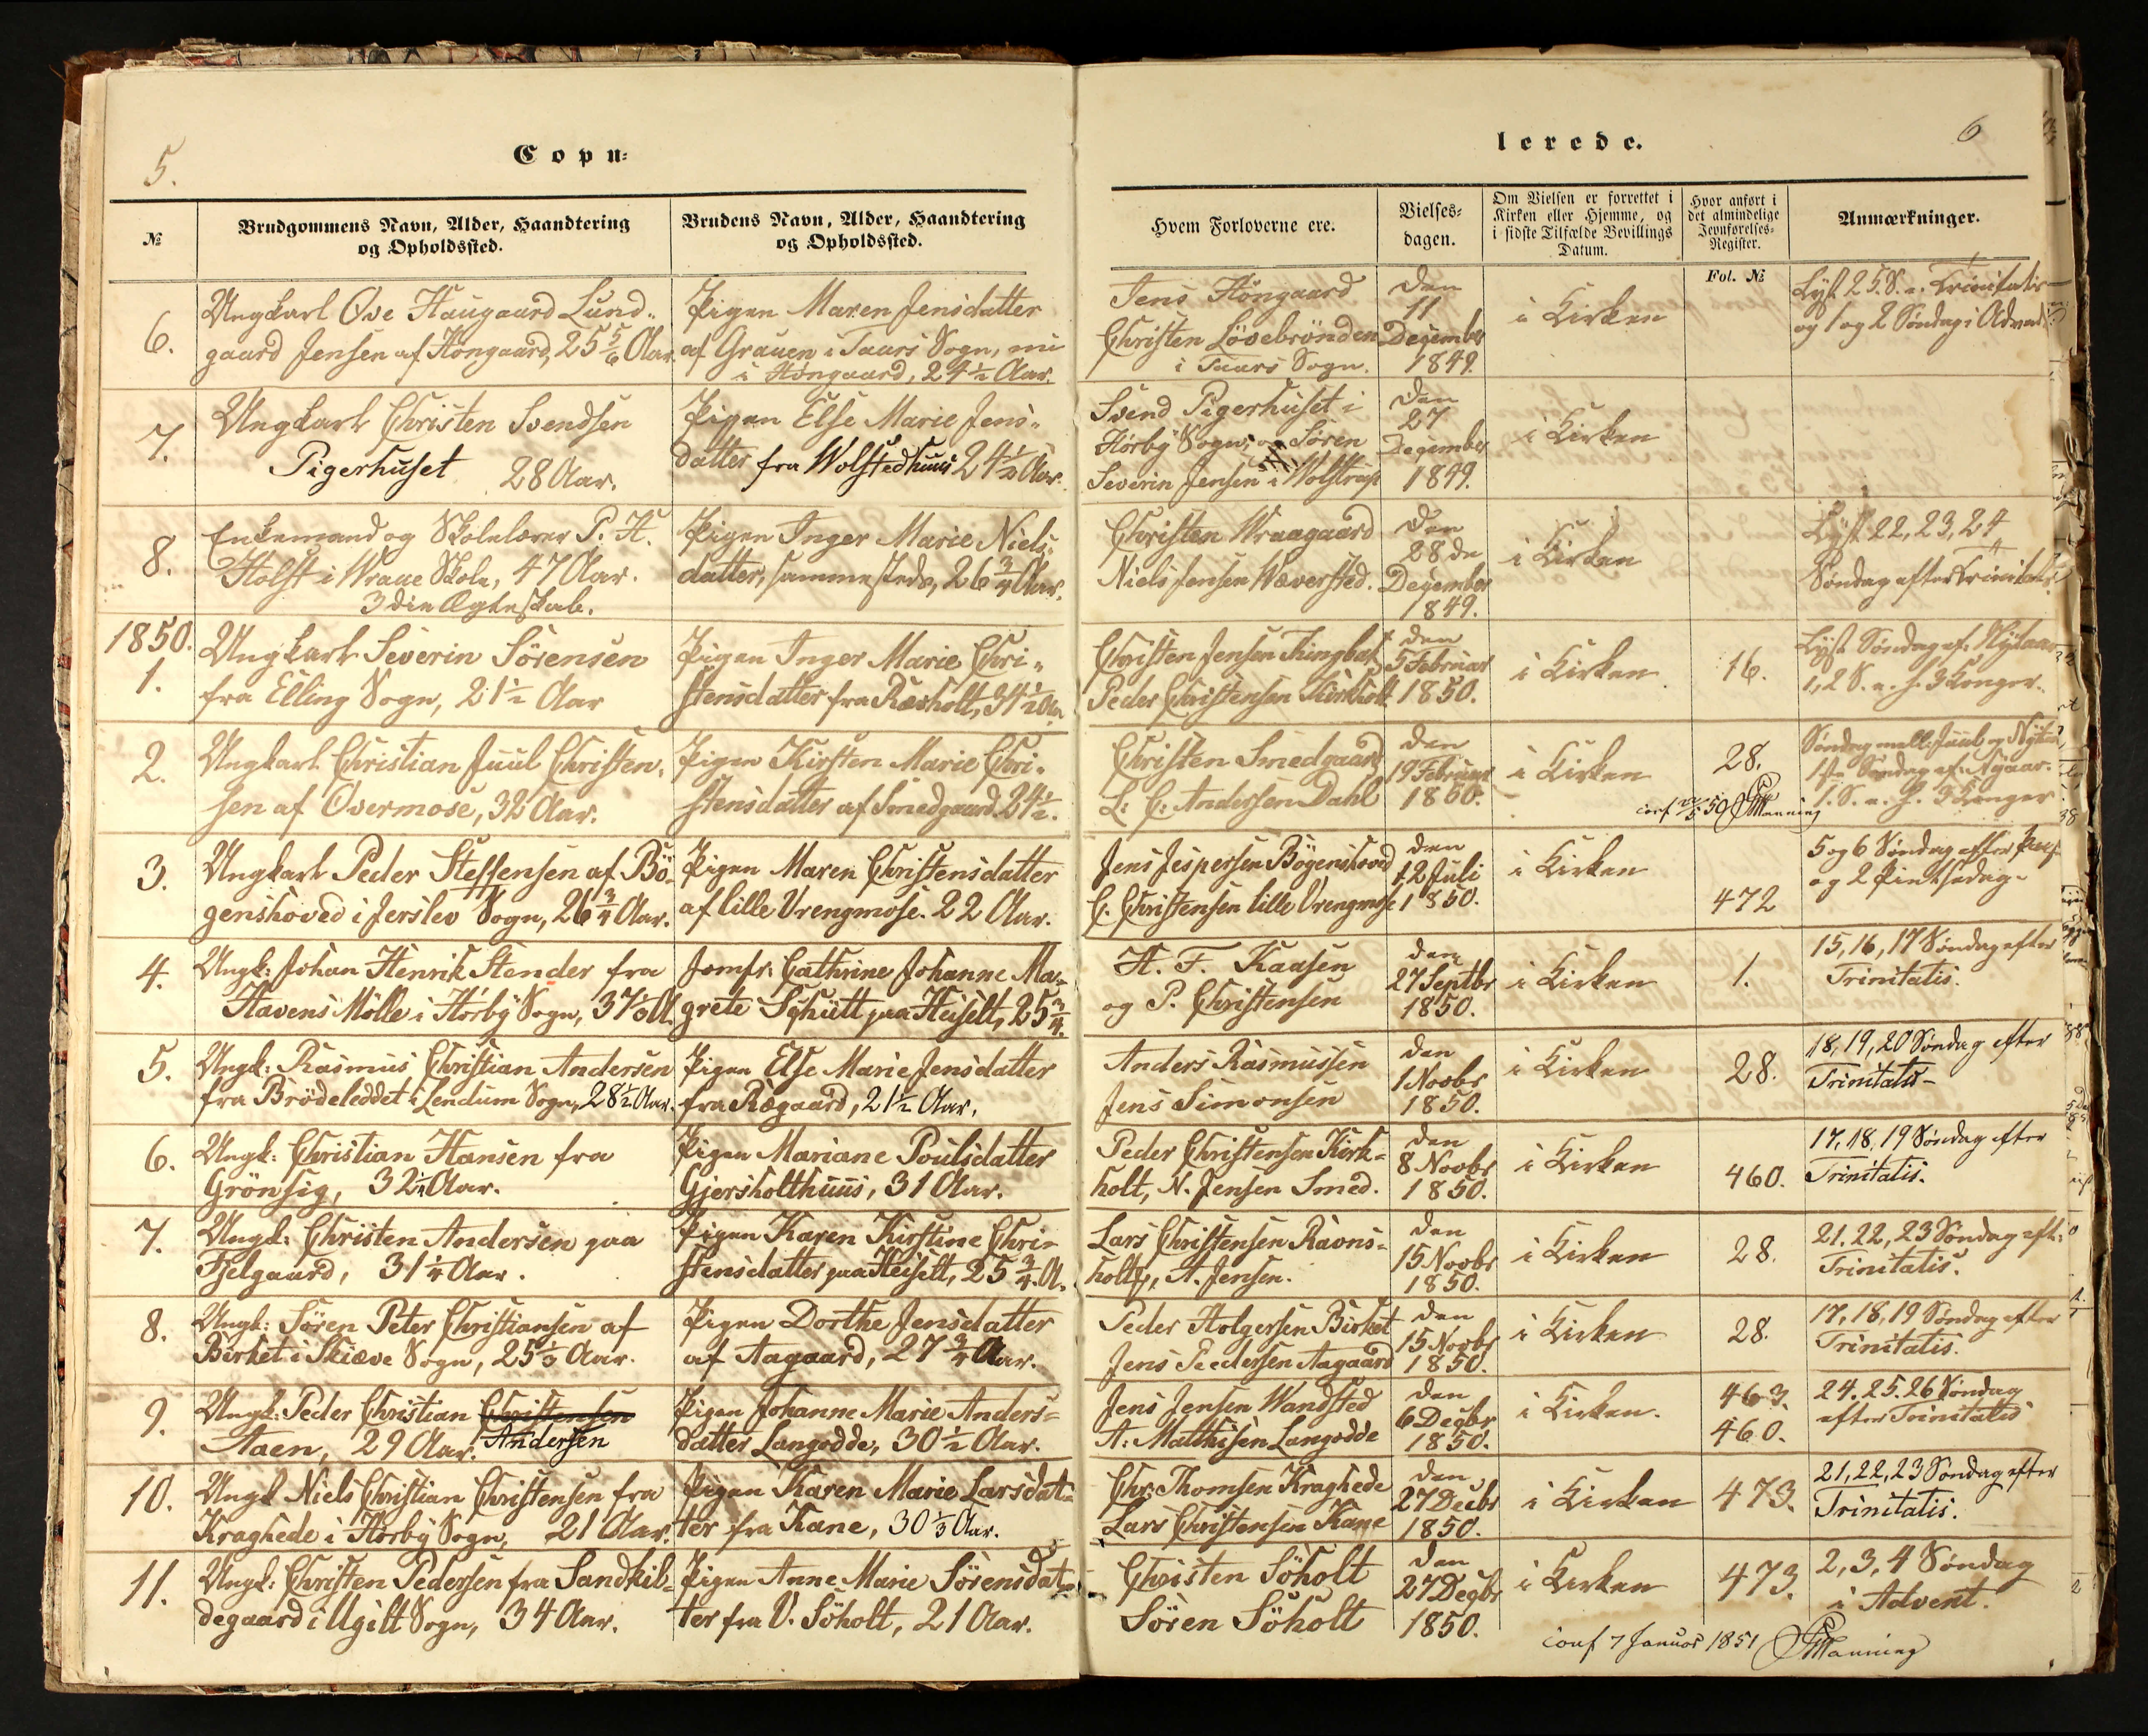 5.
Copu=
lerede.
6
№
Brudgommens Navn, Alder, Haandtering
og Opholdssted.
Brudens Navn, Alder, Haandtering
og Opholdssted.
Hvem Forloverne ere.
Vielses=
dagen.
Om Vielsen er forrettet i
Kirken eller Hjemme, og
i sidste Tilfælde Bevillings
Datum.
Hvor anført i
det almindelige
Jevnførelses=
Register.
Fol. №
Anmærkninger.
6.
Ungkarl Ove Haugaard Lund-
gaard Jensen af Höngaard, 25 5/6 Aar.
Pigen Maren Jensdatter
af Grauen i Taars Sogn, nu
i Höngaard, 24 1/2 Aar.
Jens Höngaard
Christen Lövebrönden
i Taars Sogn.
den
11
December
1849.
i Kirken
Lyst 25. S. e. Trinitatis
og 1 og 2 Söndag i Advent
7.
Ungkarl Christen Svendsen
Pigerhuset 28 Aar.
Pigen Else Marie Jens-
datter fra Wolstedhuus 24 1/2 Aar.
Svend Pigerhuset i
Hörby Sogn, og Sören
Severin Jensen i Wolstrup
den
27
December
1849.
i Kirken
8.
Enkemand og Skolelærer P. H.
Holst i Wraae Skole, 47 Aar.
3die Ægteskab.
Pigen Inger Marie Niels-
datter, sammesteds, 26 3/4 Aar.
Christen Wraagaard
Niels Jensen Wæversted.
den
28de
December
1849.
i Kirken
Lyst 22, 23, 24
Söndag efter Trinitatis.
1850.
1.
Ungkarl Severin Sörensen
fra Elling Sogn, 21 1/2 Aar
Pigen Inger Marie Chri-
stensdatter fra Ravholt, 34 1/2 Aar
Christen Jensen Kingbek
Peder Christensen Kirkholt
den
5 Februar
1850.
i Kirken
16.
Lyst Söndag ef. Nytaar
1, 2 S. e. H. 3 Konger.
2.
Ungkarl Christian Juul Christen-
sen af Overmose, 32 Aar.
Pigen Kirsten Marie Chri-
stensdatter af Smedgaard. 24 1/2.
Christen Smedgaard
L. C. Andersen Dahl
den
19 Februar
1850.
i Kirken
28.
Söndag mell. Juul og Nytaar,
1ste Söndag ef. Nyaar.
1. S. e. H. 3 Konger
conf 22/5 50 Manning
3.
Ungkarl Peder Steffensen af Bö-
genshoved i Jerslev Sogn, 26 3/4 Aar.
Pigen Maren Christensdatter
af lille Vrengmose. 22 Aar.
Jens Jespersen Bögenshoved
C. Christensen lille Vrengmose
den
12 Juli
1850.
i Kirken
472
5 og 6 Söndag efter Paas.
og 2 Pintsedag.
4.
Ungk: Johan Henrik Stender fra
Havens Mölle i Hörby Sogn, 37 1/3 A.
Jomfr: Cathrine Johanne Ma-
grete Schütt paa Heiselt, 25 3/4.
H. F. Kaasen
og P. Christensen
den
27 Septbr
1850.
i Kirken
1.
15, 16, 17 Söndag efter
Trinitatis.
5.
Ungk: Rasmus Christian Andersen
fra Brödeleddet i Lendum Sogn, 28 1/2 Aar.
Pigen Else Marie Jensdatter
fra Rægaard, 21 1/2 Aar.
Anders Rasmussen
Jens Simonsen
den
1 Novbr
1850.
i Kirken
28.
18, 19, 20 Söndag efter
Trinitatis-
6.
Ungk: Christian Hansen fra
Grönsig, 32 1/4 Aar.
Pigen Mariane Poulsdatter
Gjersholthuus, 31 Aar.
Peder Christensen Kirk-
holt, N. Jensen Smed.
den
8 Novbr
1850.
i Kirken
460.
17, 18, 19 Söndag efter
Trinitatis.
7.
Ungk: Christen Andersen paa
Fjelgaard, 31 1/4 Aar.
Pigen Karen Kirstine Chri-
stensdatter paa Heiselt, 25 3/4 A.
Lars Christensen Ravns-
holt, A. Jensen.
den
15 Novbr
1850.
i Kirken
28.
21. 22, 23 Söndag eft:
Trinitatis.
8.
Ungk: Sören Peter Christiansen af
Birket i Skiæve Sogn, 25 1/3 Aar.
Pigen Dorthe Jensdatter
af Aagaard, 27 3/4 Aar.
Peder Holgersen Birket
Jens Peedersen Aagaard
den
15 Novbr
1850.
i Kirken
28.
17, 18, 19 Söndag efter
Trinitatis.
9.
Ungk: Peder Christian Christensen
Aaen, 29 Aar. Andersen
Pigen Johanne Marie Anders-
datter Langodde, 30 1/2 Aar.
Jens Jensen Wandsted
A: Matthisen Langodde
den
6 Decbr
1850.
i Kirken.
463.
460.
24. 25. 26 Söndag
efter Trinitatis
10.
Ungk Niels Christian Christensen fra
Kraghede i Hörby Sogn, 21 Aar.
Pigen Karen Marie Larsdat-
ter fra Kane, 30 1/3 Aar.
Chr: Thomsen Kraghede
Lars Christensen Kane
den
27 Decbr
1850.
i Kirken
473.
21, 22, 23 Söndag efter
Trinitatis.
11.
Ungk: Christen Pedersen fra Sandkil-
degaard i Ugilt Sogn, 34 Aar.
Pigen Anne Marie Sörensdat-
ter fra V. Söholt, 21 Aar.
Christen Söholt
Sören Söholt
den
27 Decbr
1850.
i Kirken
473.
2, 3, 4 Söndag
i Advent.
conf 7 Januar 1851 Manning